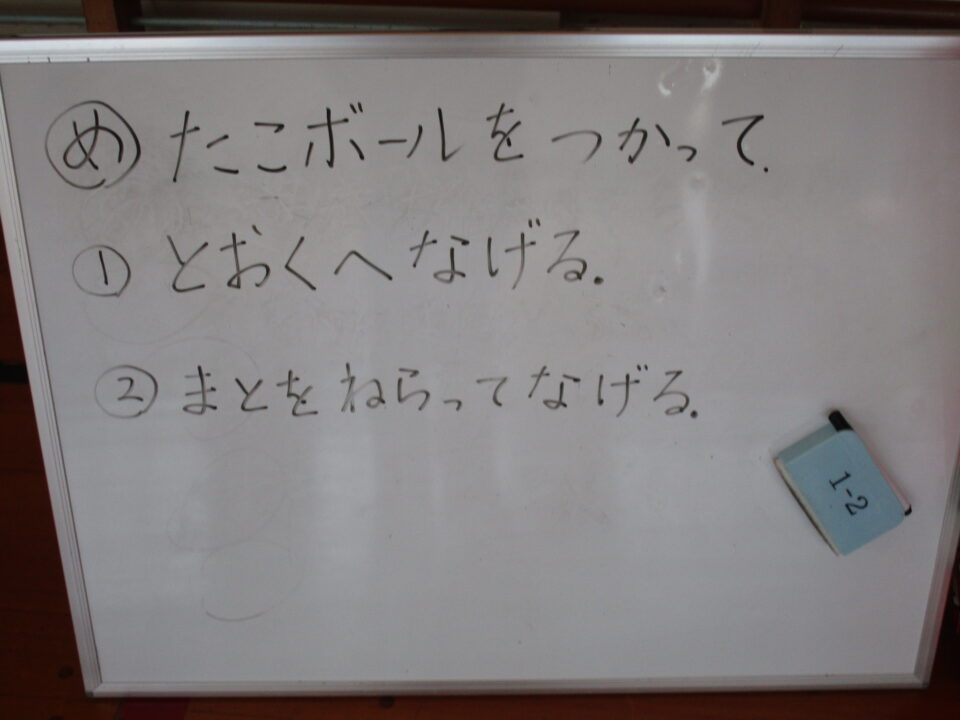 め たこボールをつかって.
① とおくへなげる.
② まとをねらってなげる.
1-2